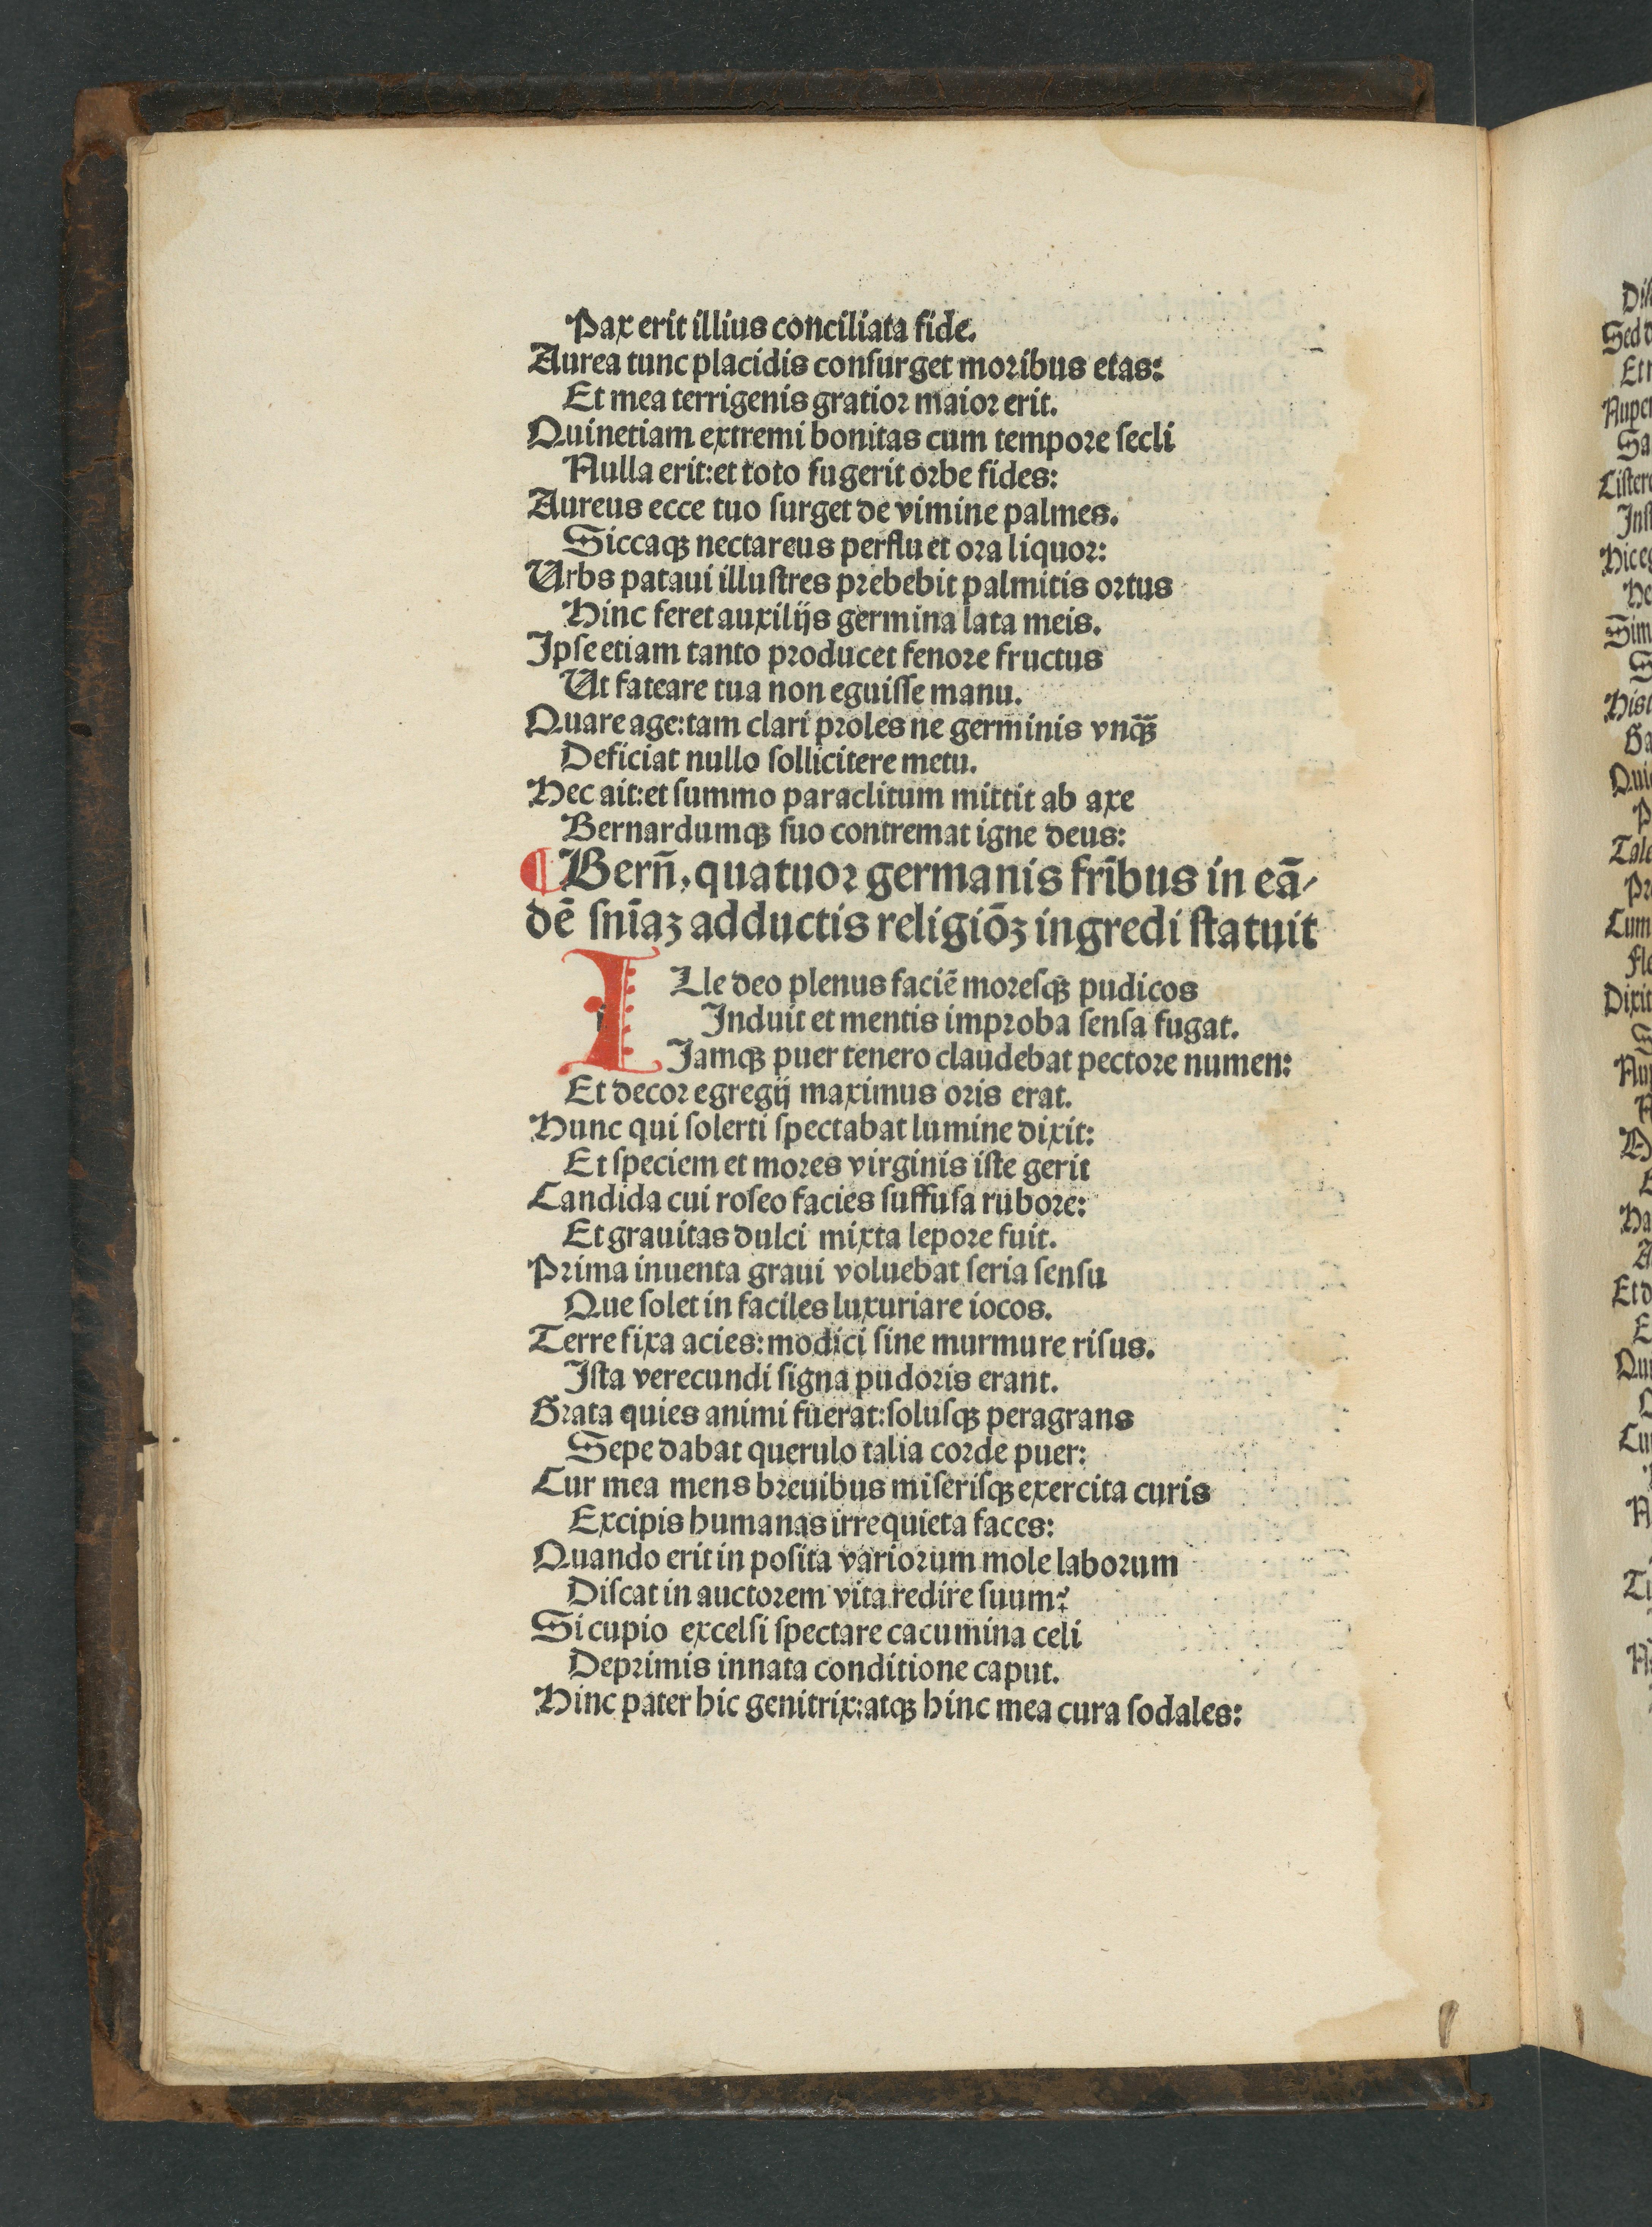 Pax erit illius conciliata fide.
Aurea tunc placidis conſurget moꝛibus etas:
Et mea terrigenis gratioꝛ maioꝛ erit.
Quinetiam extremi bonitas cum tempoꝛe ſecli
Nulla erit:et toto fugerit oꝛbe fides:
Aureus ecce tuo ſurget de vimine palmes.
Siccaqꝫ nectareus perfluet oꝛa liquoꝛ:
Urbs pataui illuſtres pꝛebebit palmitis oꝛtus
Hinc feret auxilijs germina lata meis.
Ipſe etiam tanto pꝛoducet fenoꝛe fructus
Ut fateare tua non eguiſſe manu.
Quare age:tam clari pꝛoles ne germinis vnqꝫ̄
Deficiat nullo ſollicitere metu.
Hec ait:et ſummo paraclitum mittit ab axe
Bernardumqꝫ ſuo contremat igne deus:
¶ Bern̄, quatuoꝛ germanis fr̄ibus in eā/
dē ſn̄iaꝫ adductis religiōꝫ ingredi ſtatuit
ILle deo plenus faciē moꝛeſqꝫ pudicos
Induit et mentis impꝛoba ſenſa fugat.
Jamqꝫ puer tenero claudebat pectoꝛe numen:
Et decoꝛ egregij maximus oꝛis erat.
Hunc qui ſolerti ſpectabat lumine dixit:
Et ſpeciem et moꝛes virginis iſte gerit
Candida cui roſeo facies ſuffuſa ruboꝛe:
Et grauitas dulci mixta lepoꝛe fuit.
Pꝛima inuenta graui voluebat ſeria ſenſu
Que ſolet in faciles luxuriare iocos.
Terre fixa acies:modici ſine murmure riſus.
Iſta verecundi ſigna pudoꝛis erant.
Gꝛata quies animi fuerat:ſoluſqꝫ peragrans
Sepe dabat querulo talia coꝛde puer:
Cur mea mens bꝛeuibus miſeriſqꝫ exercita curis
Excipis humanas irrequieta faces:
Quando erit in poſita varioꝛum mole laboꝛum
Diſcat in auctoꝛem vita redire ſuum?
Si cupio excelſi ſpectare cacumina celi
Depꝛimis innata conditione caput.
Hinc pater hic genitrix:atqꝫ hinc mea cura ſodales: